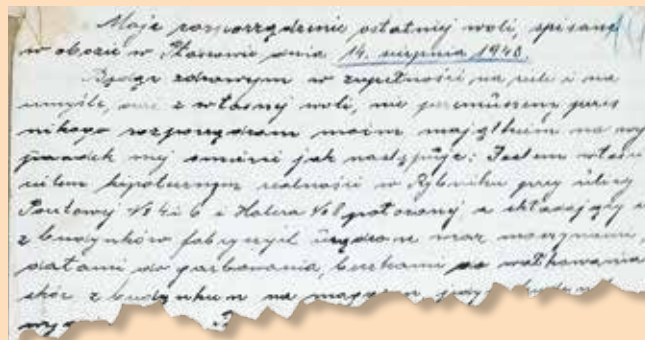 Moje rozporządzenie ostatniej woli, spisane
w obozie w Płaszowie dnia 14. sierpnia 1943.
Będąc zdrowym w zupełności na ciele i na
umyśle, z własnej woli, nie przez
nikogo rozporządzam moim majątkiem na wy
padek mej śmierci jak następuje: Jestem właści
cielem hipotecznym realności w Rybniku przy ulicy
№ 4 i 6 i Halera № 8 położonej a składającej
z budynków urządzone maszynami,
do garbowania, beczkami do walkowania
skór z budynku na magazyn